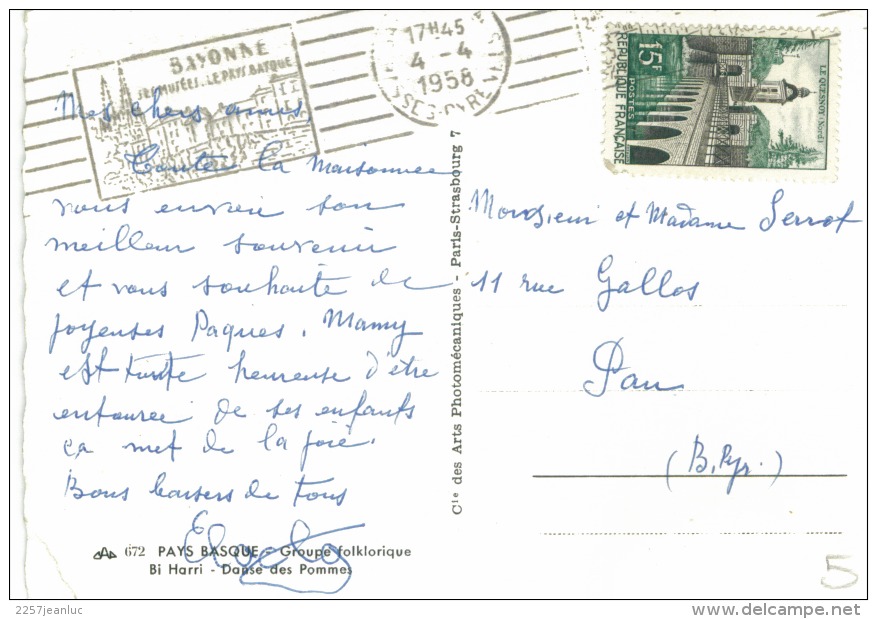 BAYONNE
SES MUSÉES. LE PAYS BASQUE
17H45
4-4
1958
15F
POSTES
REPUBLIQUE FRANÇAISE
LE QUESNOY (Nord)
Mes chers amis,
Toute la maisonnée
vous envoie son
meilleur souvenir
et vous souhaite de
joyeuses Paques. Mamy
est toute heureuse d'être
entourée de ses enfants
ça met de la joie.
Bons baisers de tous
Monsieur et Madame Serrot
11 rue Gallos
Pau
(B. Pyr.)
Cie des Arts Photomécaniques - Paris-Strasbourg 7
672 PAYS BASQUE - Groupe folklorique
Bi Harri - Danse des Pommes
5
2257jeanluc
delcampe.net